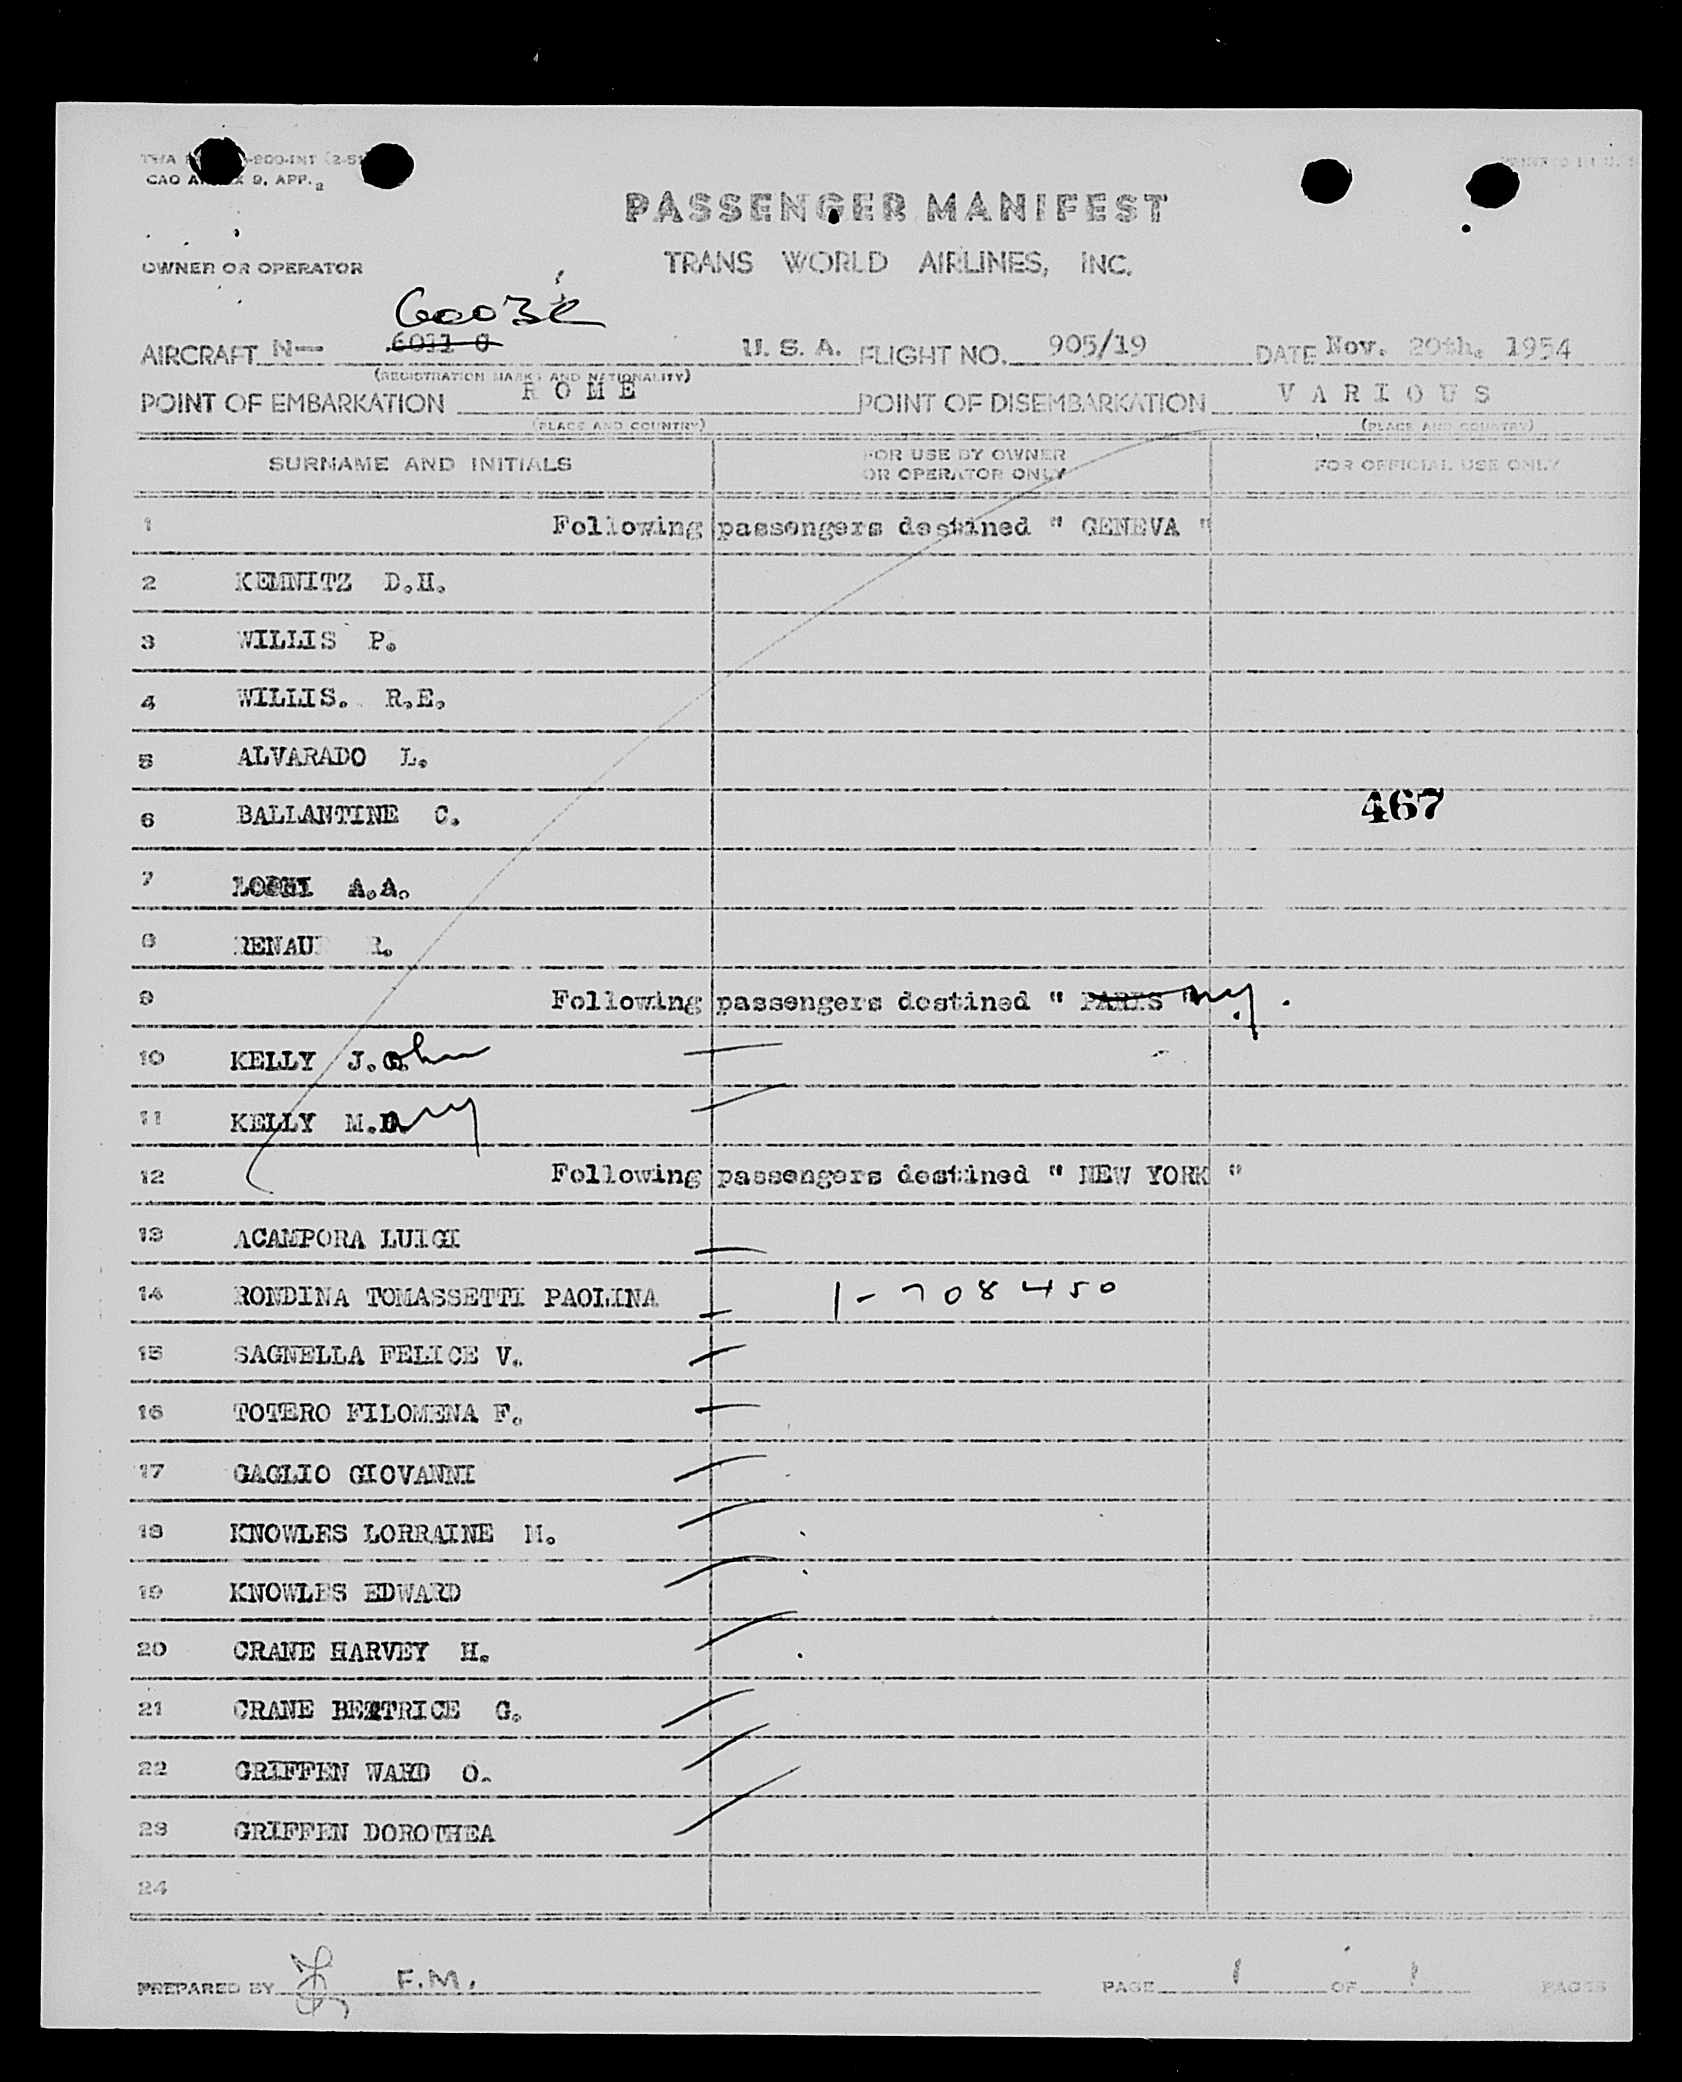 CAO ANNEX 9, APP. 2
PASSENGER MANIFEST
OWNER OR OPERATOR TRANS WORLD AIRLINES, INC.
6003C
AIRCRAFT N— 6011 C U. S. A. FLIGHT NO. 905/19 DATE Nov. 20th. 1954
(REGISTRATION MARKS AND NATIONALITY)
POINT OF EMBARKATION R O M E POINT OF DISEMBARKATION V A R I O U S
(PLACE AND COUNTRY) (PLACE AND COUNTRY)
SURNAME AND INITIALS FOR USE BY OWNER OR OPERATOR ONLY FOR OFFICIAL USE ONLY
1 Following passengers destined " GENEVA "
2 KEMNITZ D.H.
3 WILLIS P.
4 WILLIS. R.E.
5 ALVARADO L.
6 BALLANTINE C. 467
7 A.A.
8 RENAU R.
9 Following passengers destined " PARIS " ny.
10 KELLY J.G. ohn
11 KELLY M.D. ary
12 Following passengers destined " NEW YORK "
13 ACAMPORA LUIGI
14 RONDINA TOMASSETTI PAOLINA 1-708450
15 SAGNELLA FELICE V.
16 TOTERO FILOMENA F.
17 GAGLIO GIOVANNI
18 KNOWLES LORRAINE M.
19 KNOWLES EDWARD
20 CRANE HARVEY H.
21 CRANE BEATRICE G.
22 GRIFFEN WARD O.
23 GRIFFEN DOROTHEA
24
PREPARED BY F.M. PAGE 1 OF 1 PAGES